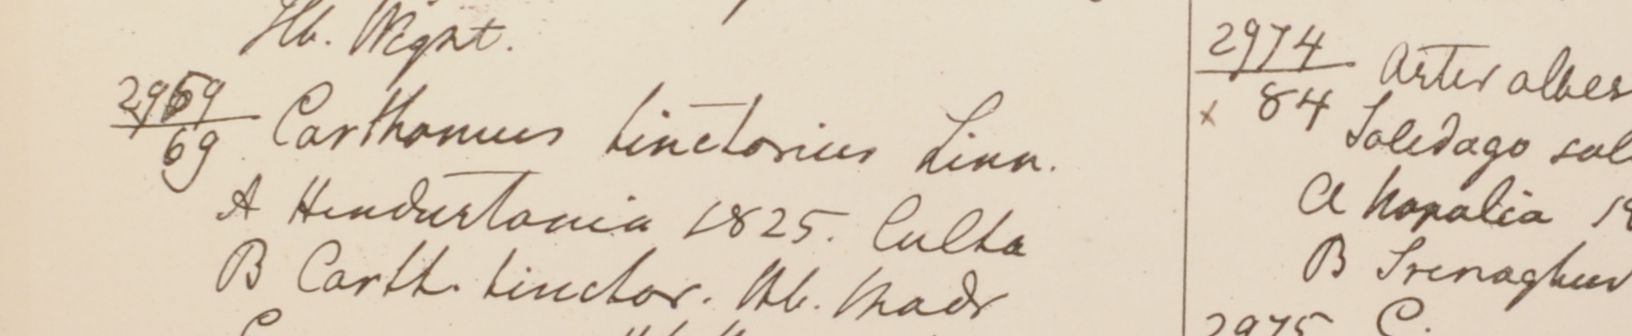 Hb. Wight.
2969
69
Carthamus tinctorius Linn.
A Hindustania 1825. Culta
B Carth. tinctor. Hb. Madr
2974
Aster albes
x 84
Soledago sol
a Napalia 18
B Srenaghur
2975 C.